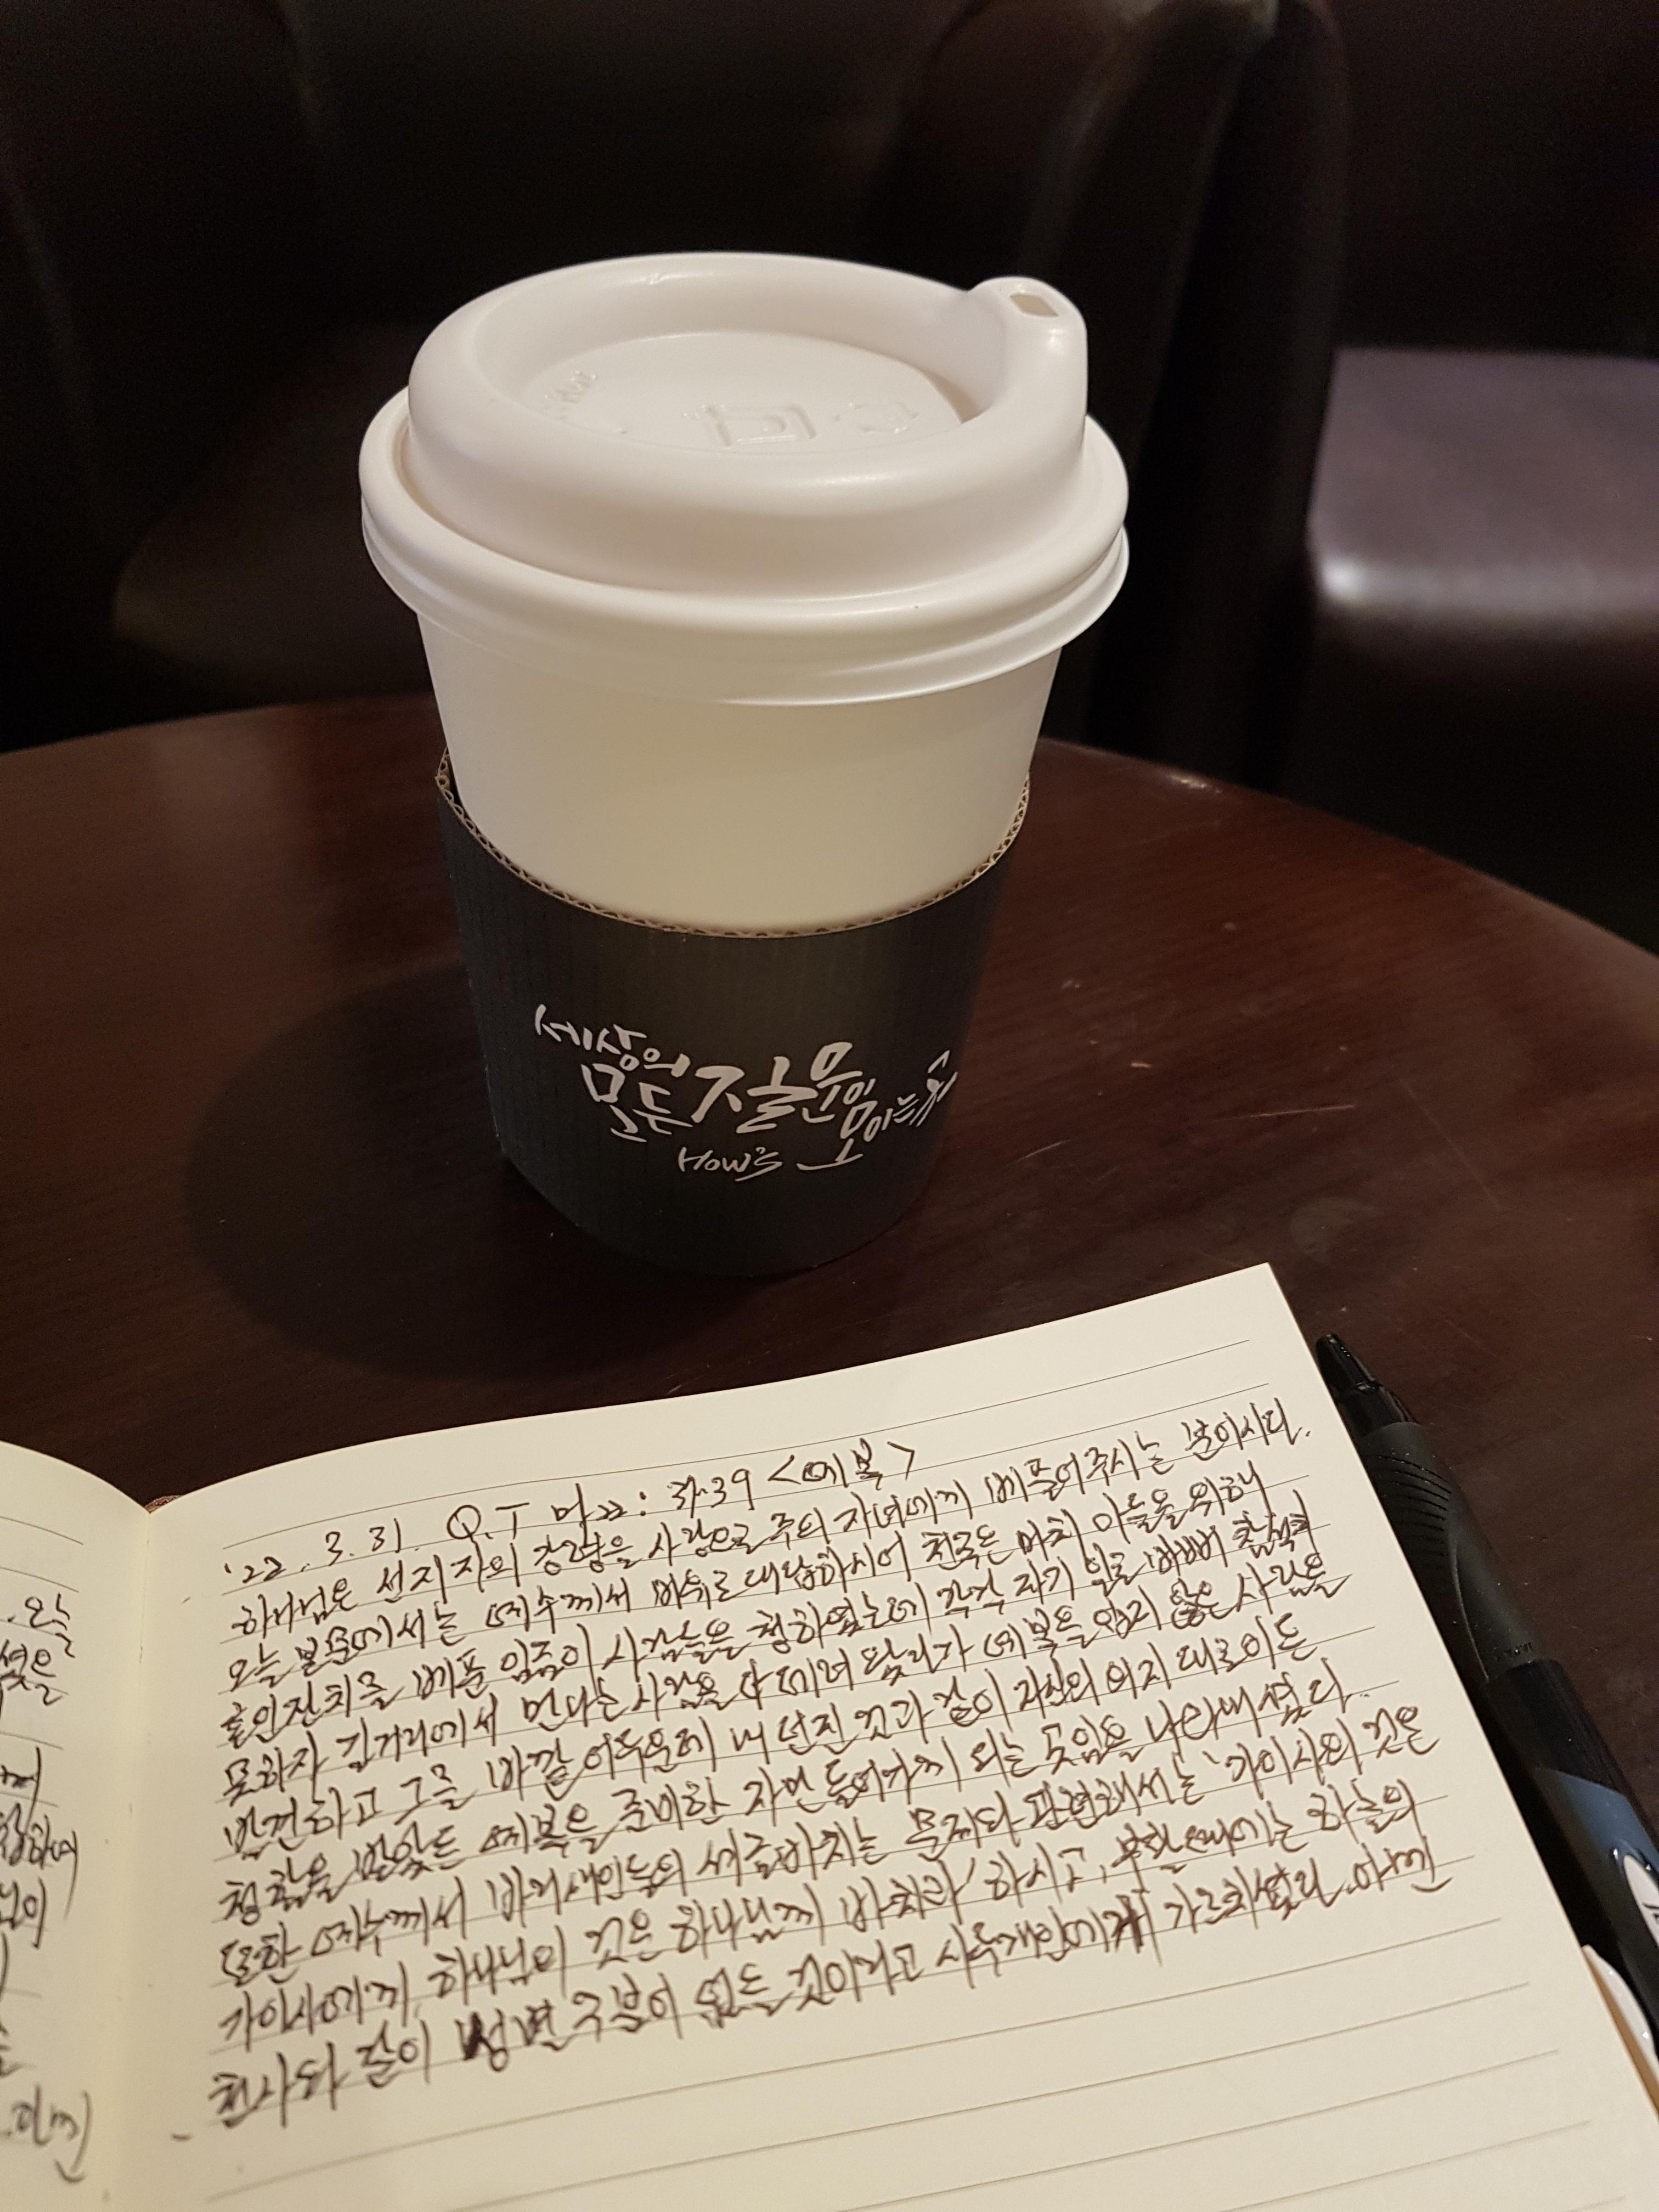 세상의
모든 질문이
모이는 곳
How's
'22. 3. 31. Q.T 마22: 37-39 <예복>
하나님은 선지자의 강령을 사랑으로 주의 자녀에게 베풀어주시는 분이시다.
오늘 본문에서는 예수께서 비유로 대답하시어 천국은 마치 아들을 위해
혼인잔치를 베푼 임금이 사람들을 청하였는데 각각 자기 일로 바빠 참석치
못하자 길거리에서 만나는 사람을 다 데려 왔다가 예복을 입지 않은 사람을
발견하고 그를 바깥 어두운데 내 던진 것과 같이 자신의 의지 대로이든
청함을 받았든 예복을 준비한 자만 들어가게 되는 곳임을 나타내셨다.
또한 예수께서 바리새인들의 세금바치는 문제와 관련해서는 '가이사의 것은
가이사에게, 하나님의 것은 하나님께 바치라' 하시고, 부활때에는 하늘의
천사와 같이 성별 구분이 없는 것이라고 사두개인에게 가르치셨다. 아멘
오늘